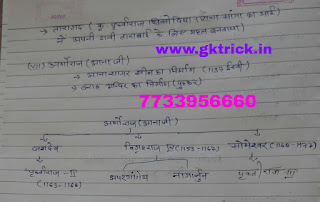 → तारागढ़ ( कु. पृथ्वीराज सिसोदिया (राणा सांगा का भाई)
ने अपनी रानी ताराबाई के लिए महल बनवाया
www.gktrick.in
अर्णोराज (आनाजी)
→ आनासागर झील का निर्माण (1137 ईस्वी)
→ वराह मन्दिर का निर्माण (पुष्कर)
7733956660
अर्णोराज (आनाजी)
जगदेव विग्रहराज IV (1153-1163) सोमेश्वर (1169-1177)
पृथ्वीराज-II अपरगांगेय नागार्जुन पृथ्वीराज-III